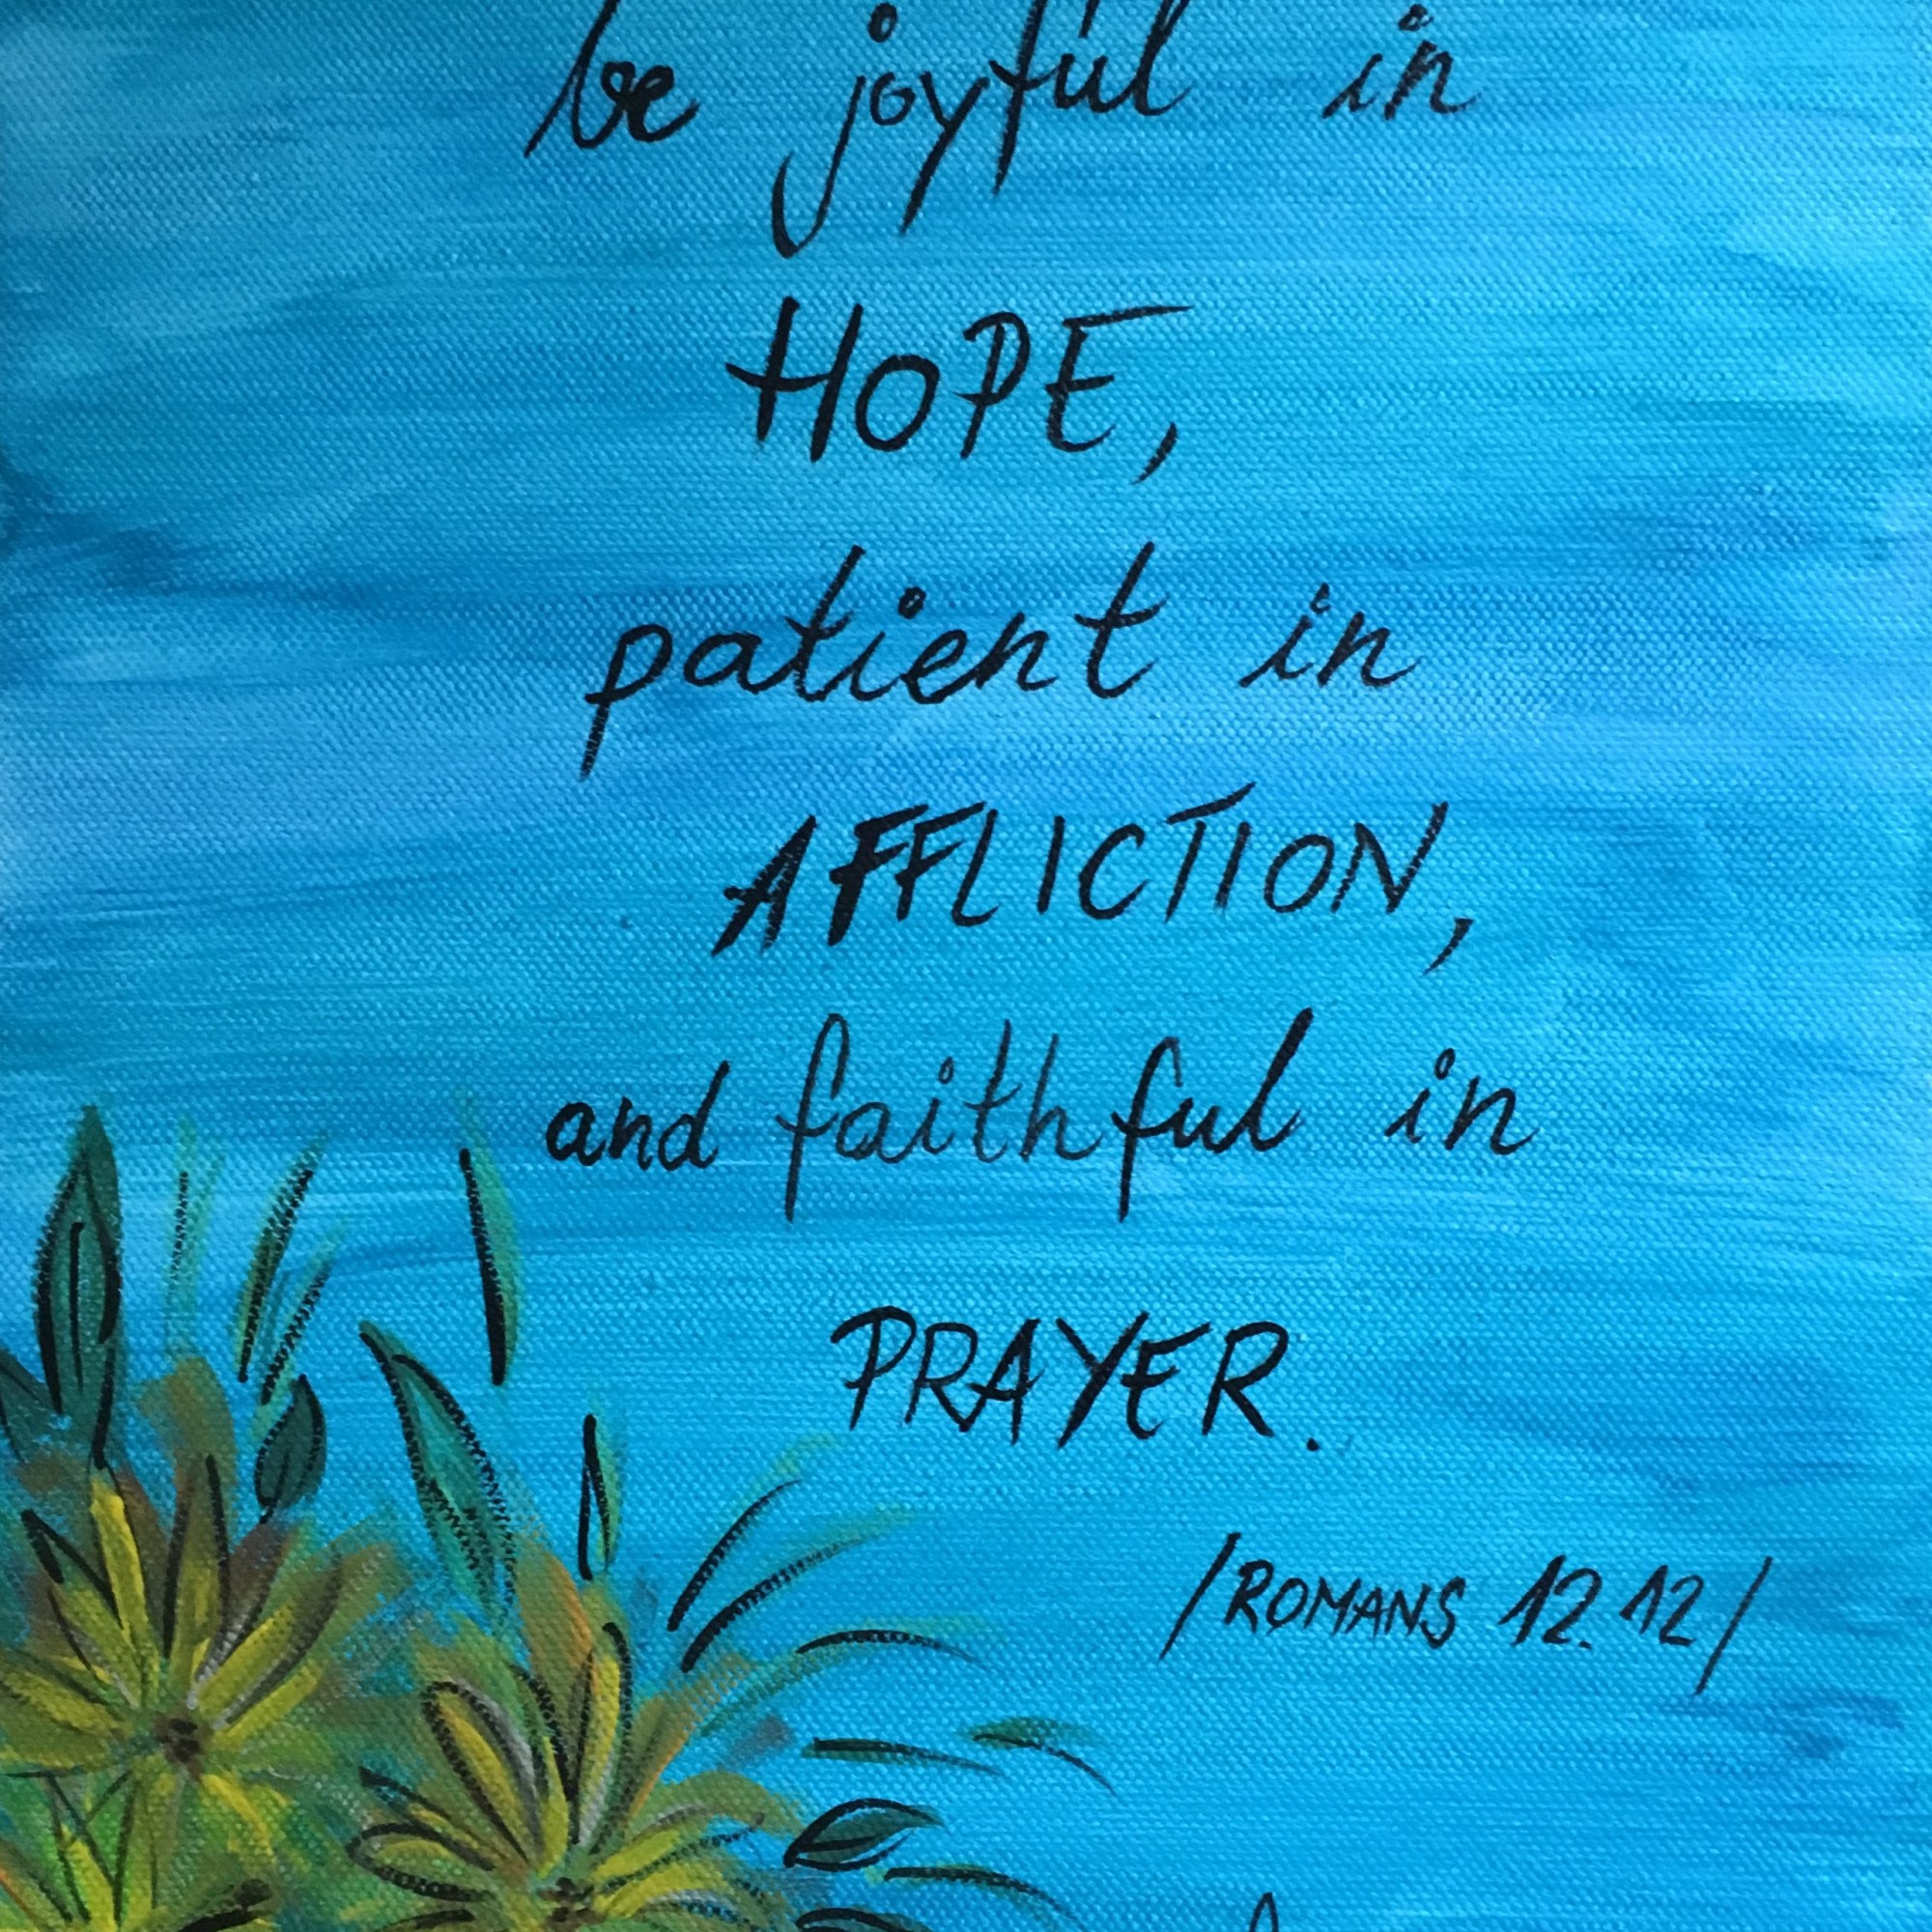 be joyful in
HOPE,
patient in
AFFLICTION,
and faithful in
PRAYER.
/ROMANS 12.12/